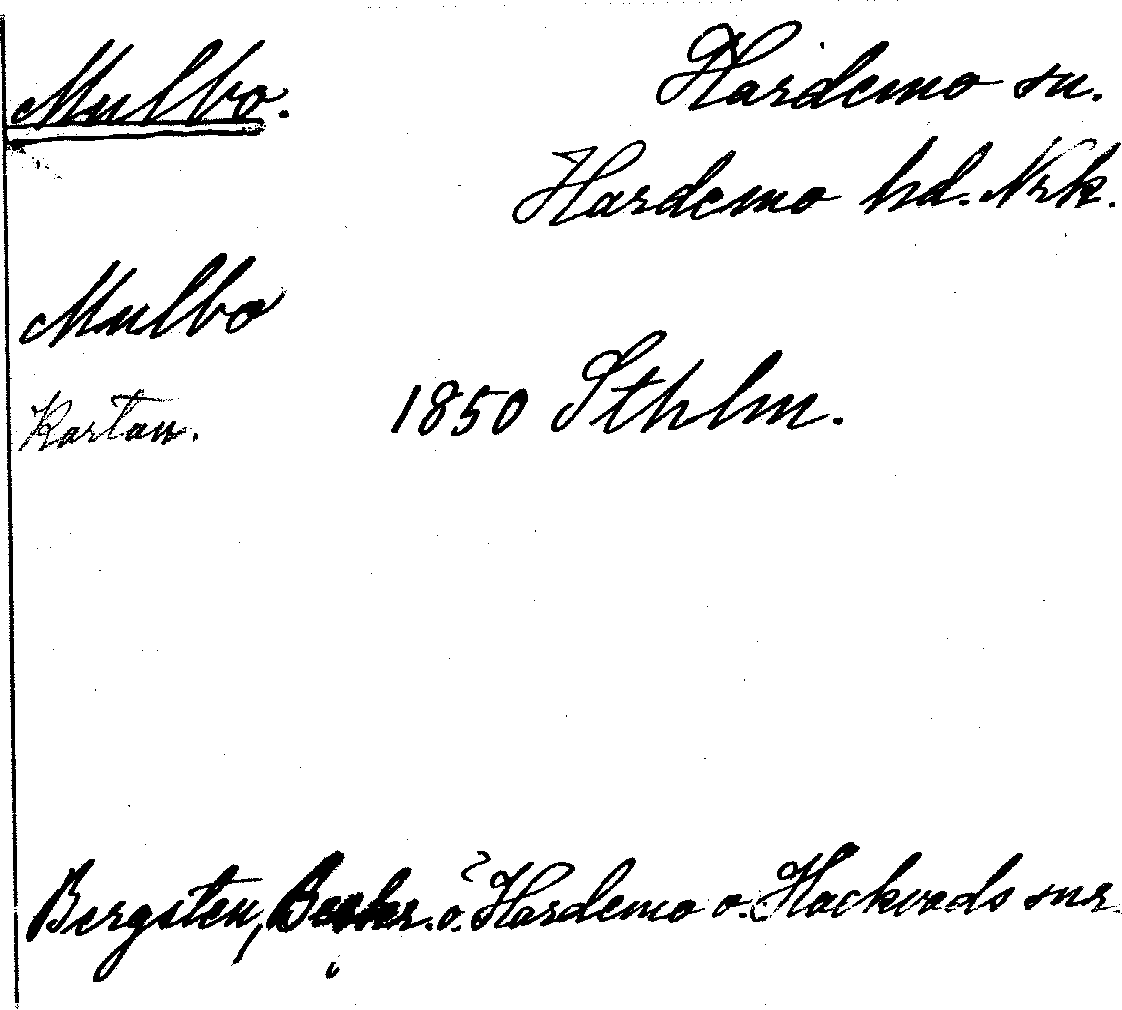 Mulbo.
Hardemo sn.
Hardemo hd. Nrk.
Mulbo
Kartan. 1850 Sthlm.
Bergsten, Beskr. ö. Hardemo o. Hackvads snr